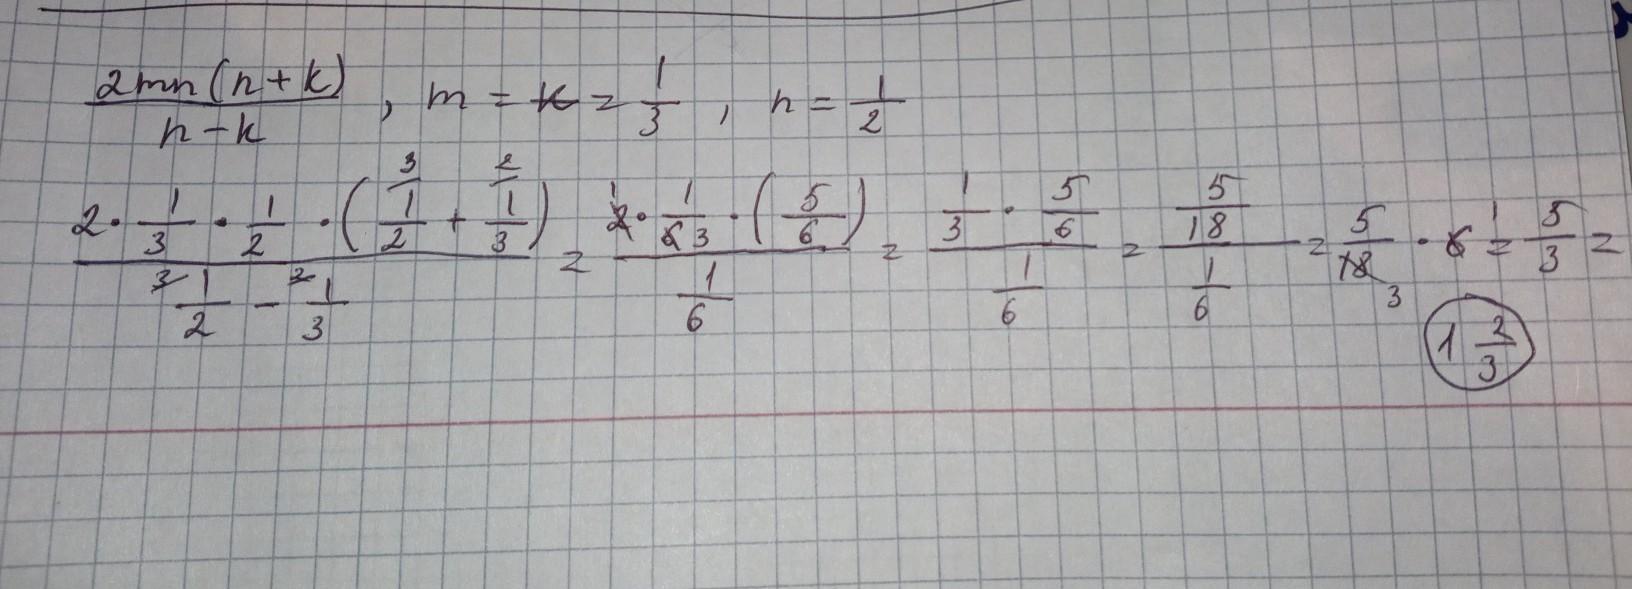 2mn(n+k)/(n-k), m = k = 1/3, n = 1/2
(2·1/3·1/2·(1/2+1/3))/(1/2-1/3) = (2·1/6·(5/6))/(1/6) = (1/3·5/6)/(1/6) = (5/18)/(1/6) = 5/18·6 = 5/3 =
1 2/3